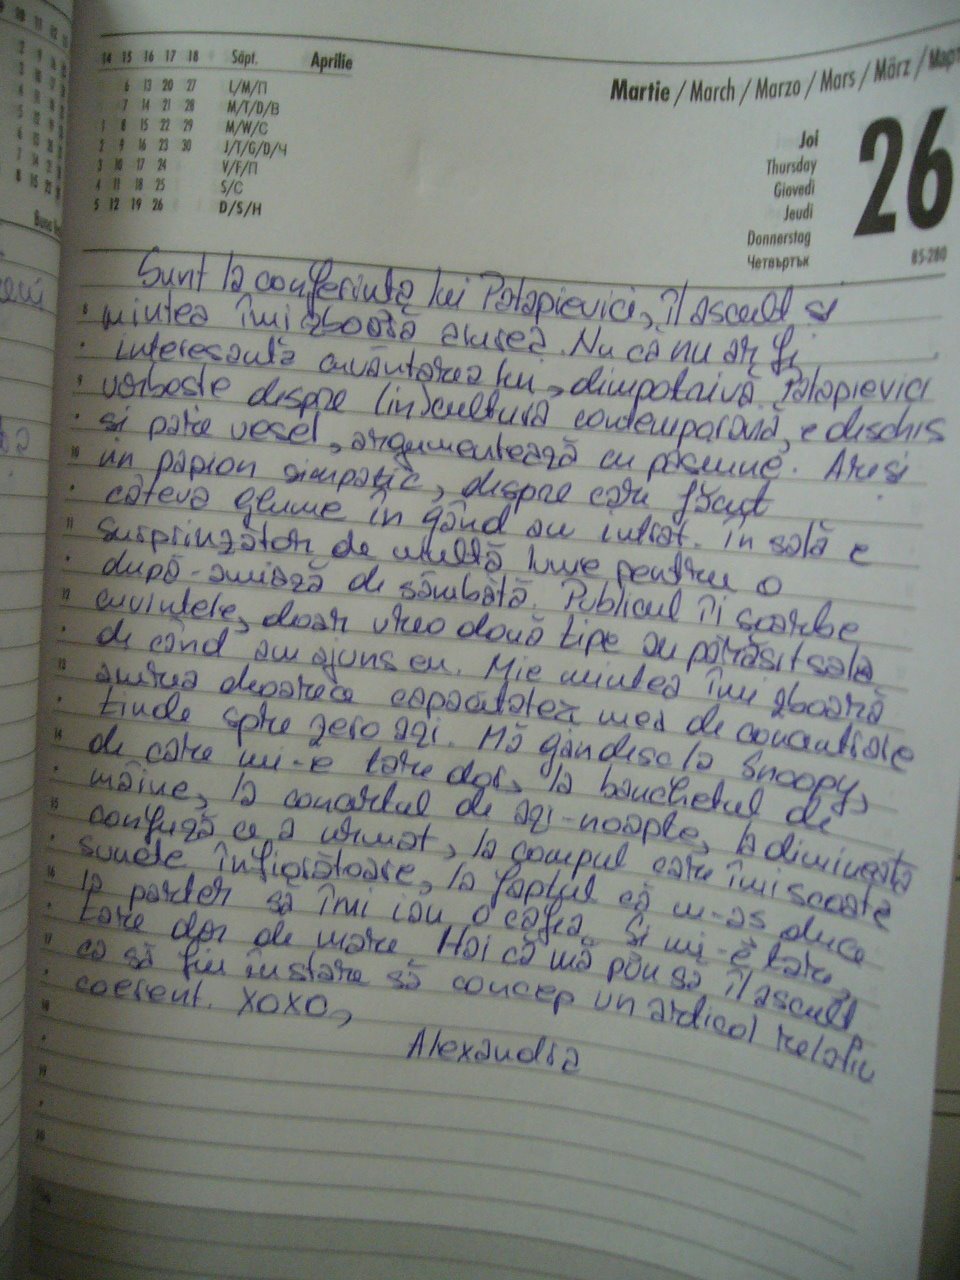 14 15 16 17 18 Săpt. Aprilie
6 13 20 27 L/M/П
7 14 21 28 M/T/D/B
1 8 15 22 29 M/W/C
2 9 16 23 30 J/T/G/D/Ч
3 10 17 24 V/F/П
4 11 18 25 S/C
5 12 19 26 D/S/H
Martie / March / Marzo / Mars / März / Март
26
Joi
Thursday
Giovedì
Jeudi
Donnerstag
Четвъртък
85-280
Sunt la conferinta lui Patapievici, îl ascult si
8 mintea îmi zboară aiurea. Nu că nu ar fi
interesantă cuvântarea lui, dimpotrivă. Patapievici
9 vorbeste despre (in)cultura contemporană, e deschis
si pare vesel, argumentează cu pasiune. Are si
10 un papion simpatic, despre care făcut
câteva glume în gând am intrat. În sală e
11 surprinzător de multă lume pentru o
după-amiază de sâmbătă. Publicul îi soarbe
12 cuvintele, doar vreo două tipe au părăsit sala
de când am ajuns eu. Mie mintea îmi zboară
13 aiurea deoarece capacitatea mea de concentrare
tinde spre zero azi. Mă gândesc la Snoopy,
14 de care mi-e tare dor, la banchetul de
mâine, la concertul de azi-noapte, la dimineata
15 confuză ce a urmat, la compul care îmi scoate
sunete înfiorătoare, la faptul că m-as duce
16 la parter să îmi iau o cafea. Si mi-e tare,
tare dor de mare. Hai că mă pun să îl ascult
17 ca să fiu în stare să concep un articol relativ
coerent. XOXO,
18
Alexandra
19
20